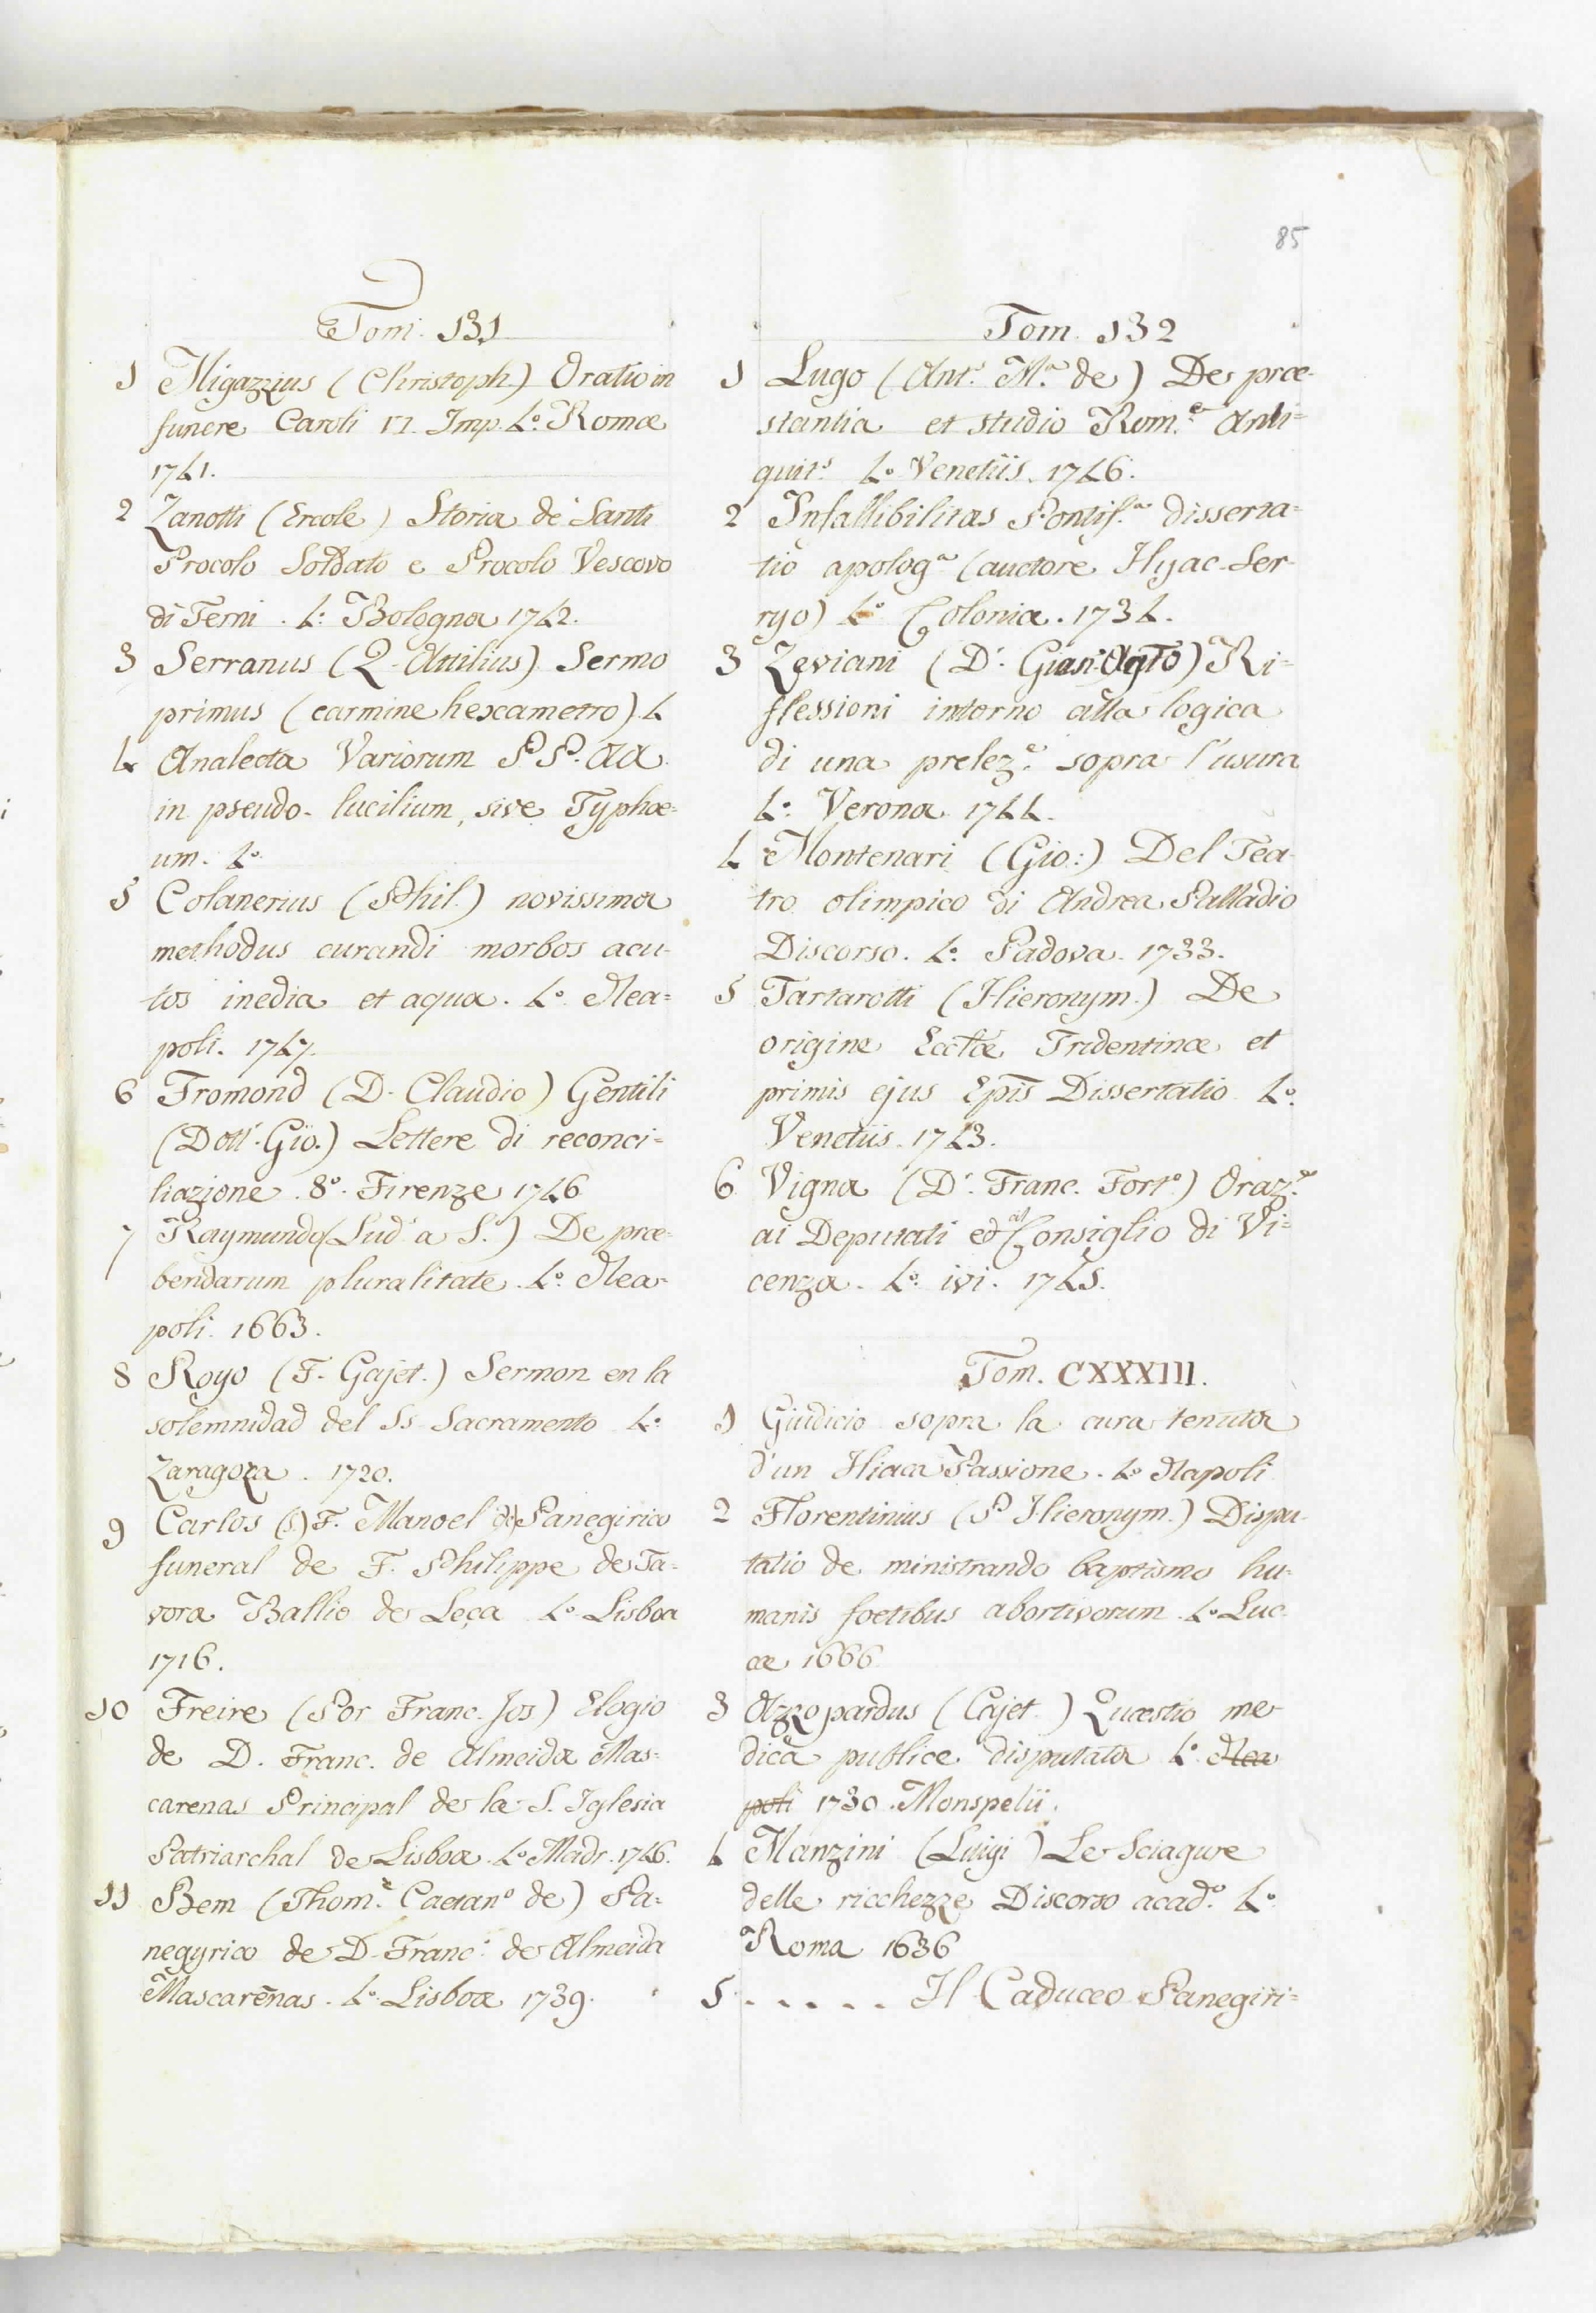 85
Tom. 131
1 Migazzius (Christoph.) Oratio in
funere Caroli VI. Imp. 4.º Romæ
1741.
2 Zanotti (Ercole) Storia de' Santi
Procolo Soldato e Procolo Vescovo
di Terni. 4.º Bologna 1742.
3 Serranus (Q. Attilius) Sermo
primus (carmine hexametro) 4
4 Analecta Variorum PP. AA.
in pseudo-lucilium, sive Typhœ=
um. 4.º
5 Colanerius (Phil.) novissima
methodus curandi morbos acu-
tos inedia et aqua. 4.º Nea=
poli. 1747.
6 Fromond (D. Claudio) Gentili
(Dott.r Gio.) Lettere di reconci=
liazione. 8.º Firenze 1746
7 Raymundo (Lud. a S.) De præ=
bendarum pluralitate. 4.º Nea-
poli. 1663.
8 Royo (F. Gajet.) Sermon en la
solemnidad del Ss. Sacramento 4.º
Zaragoza. 1720.
9 Carlos (S.) F. Manoel de Panegirico
funeral de F. Philippe de Ta=
vora Ballio de Leça 4.º Lisboa
1716.
10 Freire (Por Franc. Jos) Elogio
de D. Franc. de Almeida Mas=
carenas Principal de la S. Iglesia
Patriarchal de Lisboa. 4.º Madr. 1746.
11 Bem (Thom.e Caetan.º de) Pa=
negyrico de D. Franc.º de Almeida
Mascarēnas. 4.º Lisboa 1739.
Tom. 132
1 Lugo (Ant.º M.a de) De præ-
stantia et studio Rom.e Anti=
quit.s 4.º Venetiis. 1746.
2 Infallibilitas Pontif.a disserta=
tio apolog.a (auctore Hyac. Ser-
ryo) 4.º Coloniæ. 1734.
3 Zeviani (D.r Gian Agto) Ri=
flessioni intorno alla logica
di una prelez.e sopra l'usura
4.º Verona 1744.
4 Montenari (Gio:) Del Tea-
tro olimpico di Andrea Palladio
Discorso. 4.º Padova. 1733.
5 Tartarotti (Hieronym.) De
origine Ecclæ Tridentinæ et
primis ejus Epis Dissertatio 4.º
Venetiis. 1743.
6 Vigna (D.r Franc. Fort.º) Oraz.e
ai Deputati ed al Consiglio di Vi=
cenza. 4.º ivi. 1745.
Tom. CXXXIII.
1 Giudicio sopra la cura tenuta
d'un Iliaca Passione. 4.º Napoli
2 Florentinius (P. Hieronym.) Dispu-
tatio de ministrando baptismo hu-
manis foetibus abortivorum. 4.º Luc-
æ 1666
3 Azzopardus (Cajet.) Quæstio me-
dica publice disputata 4.º Nea
poli 1730. Monspelii.
4 Manzini (Luigi) Le Sciagure
delle ricchezze Discorso acad.º 4.º
Roma 1636
5 . . . . . Il Caduceo Panegiri=